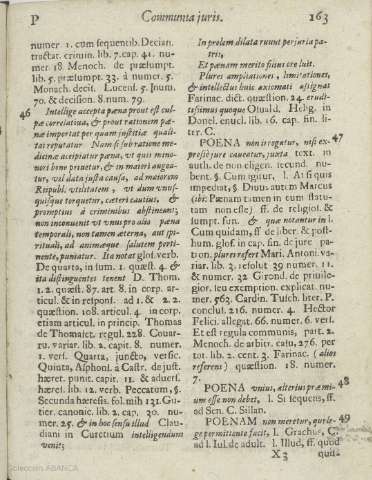 P
Communia juris.
163
numer 1. cum sequentib. Decian.
tractat. crimin. lib. 7. cap. 41. nu-
mer. 18 Menoch. de præsumpt.
lib. 5. præsumpt. 33. à numer. 5.
Monach. decis. Lucens. 5. num.
70. & decision. 8. num. 79.
46
Intellige accepta pæna prout est cul-
pæ correlativa, & prout rationem pæ-
næ importat per quam justitiæ quali-
tas reputatur Nam si sub ratione me-
dicinæ accipiatur pæna, ut quis mino-
nori bene privetur, & in maiori augea-
tur, vel data justa causa, ad maiorem
Reipubl. utilitatem, vt dum vnus-
quisque torquetur, cæteri cautius, &
promptius à criminibus abstineant;
non inconuenit vt vnus pro alio pæna
temporali, non tamen æterna, aut spi-
rituali, ad animæque salutem perti-
nente, puniatur. Ita notat glos. verb.
De quarta, in sum. 1. quæst. 4. &
ita distinguentes tenent D. Thom.
1. 2. quæst. 87. art. 8. in corp. ar-
ticul. & in respons. ad 1. & 2. 2.
quæstion. 108. articul. 4. in corp.
etiam articul. in princip. Thomas
de Thomaset. regul. 228. Couar-
ru. variar. lib. 2. capit. 8. numer.
1. vers. Quarta, juncto, versic.
Quinta, Alphons. à Castr. de just.
hæret. punit. capit. 11. & aduers.
hæres. lib. 12. verb. Peccatum, §.
Secunda hæresis. fol. mih. 131. Gu-
tier. canonic. lib. 2. cap. 30. nu-
mer. 25. & in hoc sensu illud Clau-
diani in Curetium intelligendum
venit;
In prolem dilata ruunt perjuria pa-
tris,
Et pœnam merito filius ore luit.
Plures ampliationes, limitationes,
& intellectus huic axiomati assignat
Farinac. dict. quæstion. 24. erudi-
tissimusque Otuald. Helig. in
Donel. enucl. lib. 16. cap. fin. lit-
ter. C.
POENA non irrogatur, nisi ex-
pressè jure caveatur, juxta text. in
auth. de non eligen. secund. nu-
bent. §. Cum igitur, l. At si quis
impeditus, §. Diuus autem Marcus
(ibi: Pœnam tamen in eum statu-
tam non esse) ff. de religios. &
sumpt. fun. & quæ notantur in l.
Cum quidam, ff. de liber. & post-
hum. glos. in cap. fin. de jure pa-
tron. plures refert Mari. Antoni. va-
riar. lib. 2. resolut. 39. numer. 11.
& numer. 32. Girond. de priuile-
gior. seu exemption. explicat. nu-
mer. 563. Cardin. Tusch. liter. P.
conclus. 216. numer. 4. Hector
Felici. allegat. 66. numer. 6. vers.
Et est regula communis, part. 2.
Menoch. de arbitr. casu, 276. per
tot. lib. 2. cent. 3. Farinac. (alios
referens) quæstion. 18. numer.
7.
47
POENA vnius, alterius præmi-
um esse non debet, l. Si sequens, ff.
ad Sen. C. Sillan.
48
POENAM non meretur, qui le-
ge permittante facit, l. Grachus, C.
ad l. Iul. de adult. l. Illud, ff. quod
49
X 3
quis-
Colección ABANCA